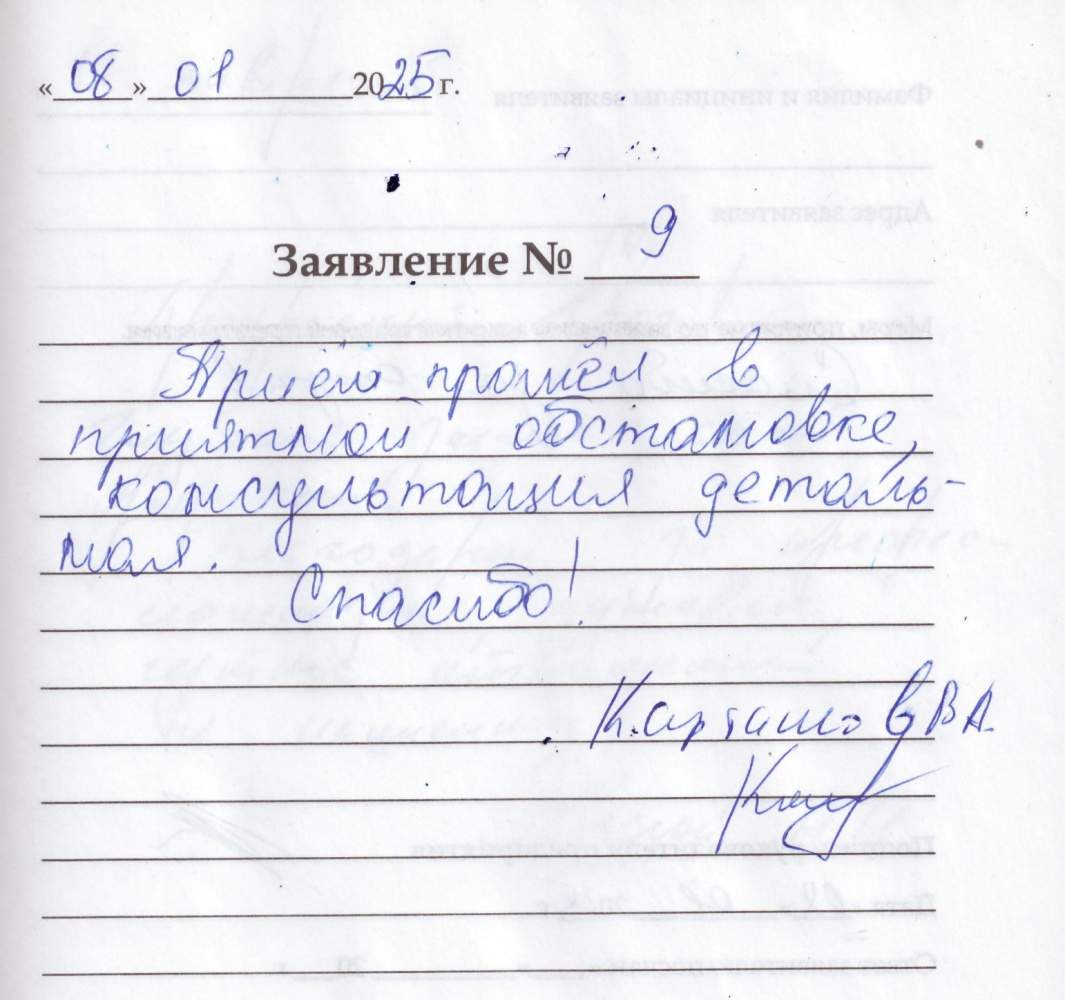 «08» 01 2025 г.
Заявление № 9
Приём прошёл в
приятной обстановке,
консультация деталь-
ная.
Спасибо!
Карташов В А.